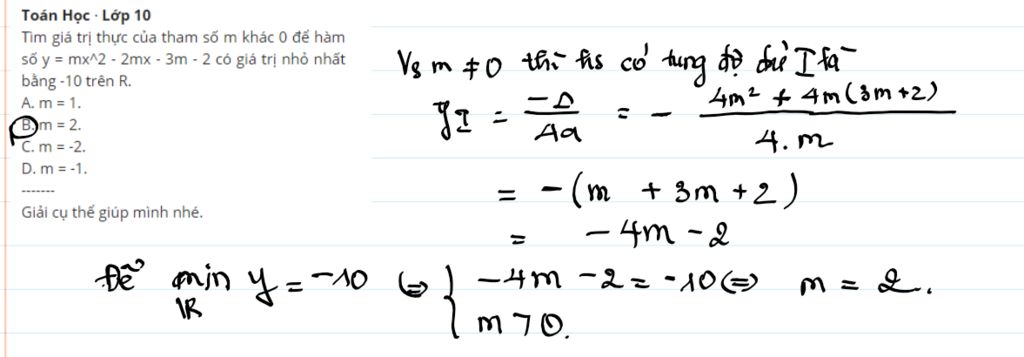 Toán Học · Lớp 10
Tìm giá trị thực của tham số m khác 0 để hàm
số y = mx^2 - 2mx - 3m - 2 có giá trị nhỏ nhất
bằng -10 trên R.
A. m = 1.
B. m = 2.
C. m = -2.
D. m = -1.
-------
Giải cụ thể giúp mình nhé.
Vs m ≠ 0 thì hs có tung độ đỉ I là
y_I = -Δ/4a = - (4m² + 4m(3m+2))/(4.m)
= -(m + 3m + 2)
= -4m - 2
Để min y = -10 ⇔ { -4m - 2 = -10 ⇔ m = 2.
ℝ
m > 0.